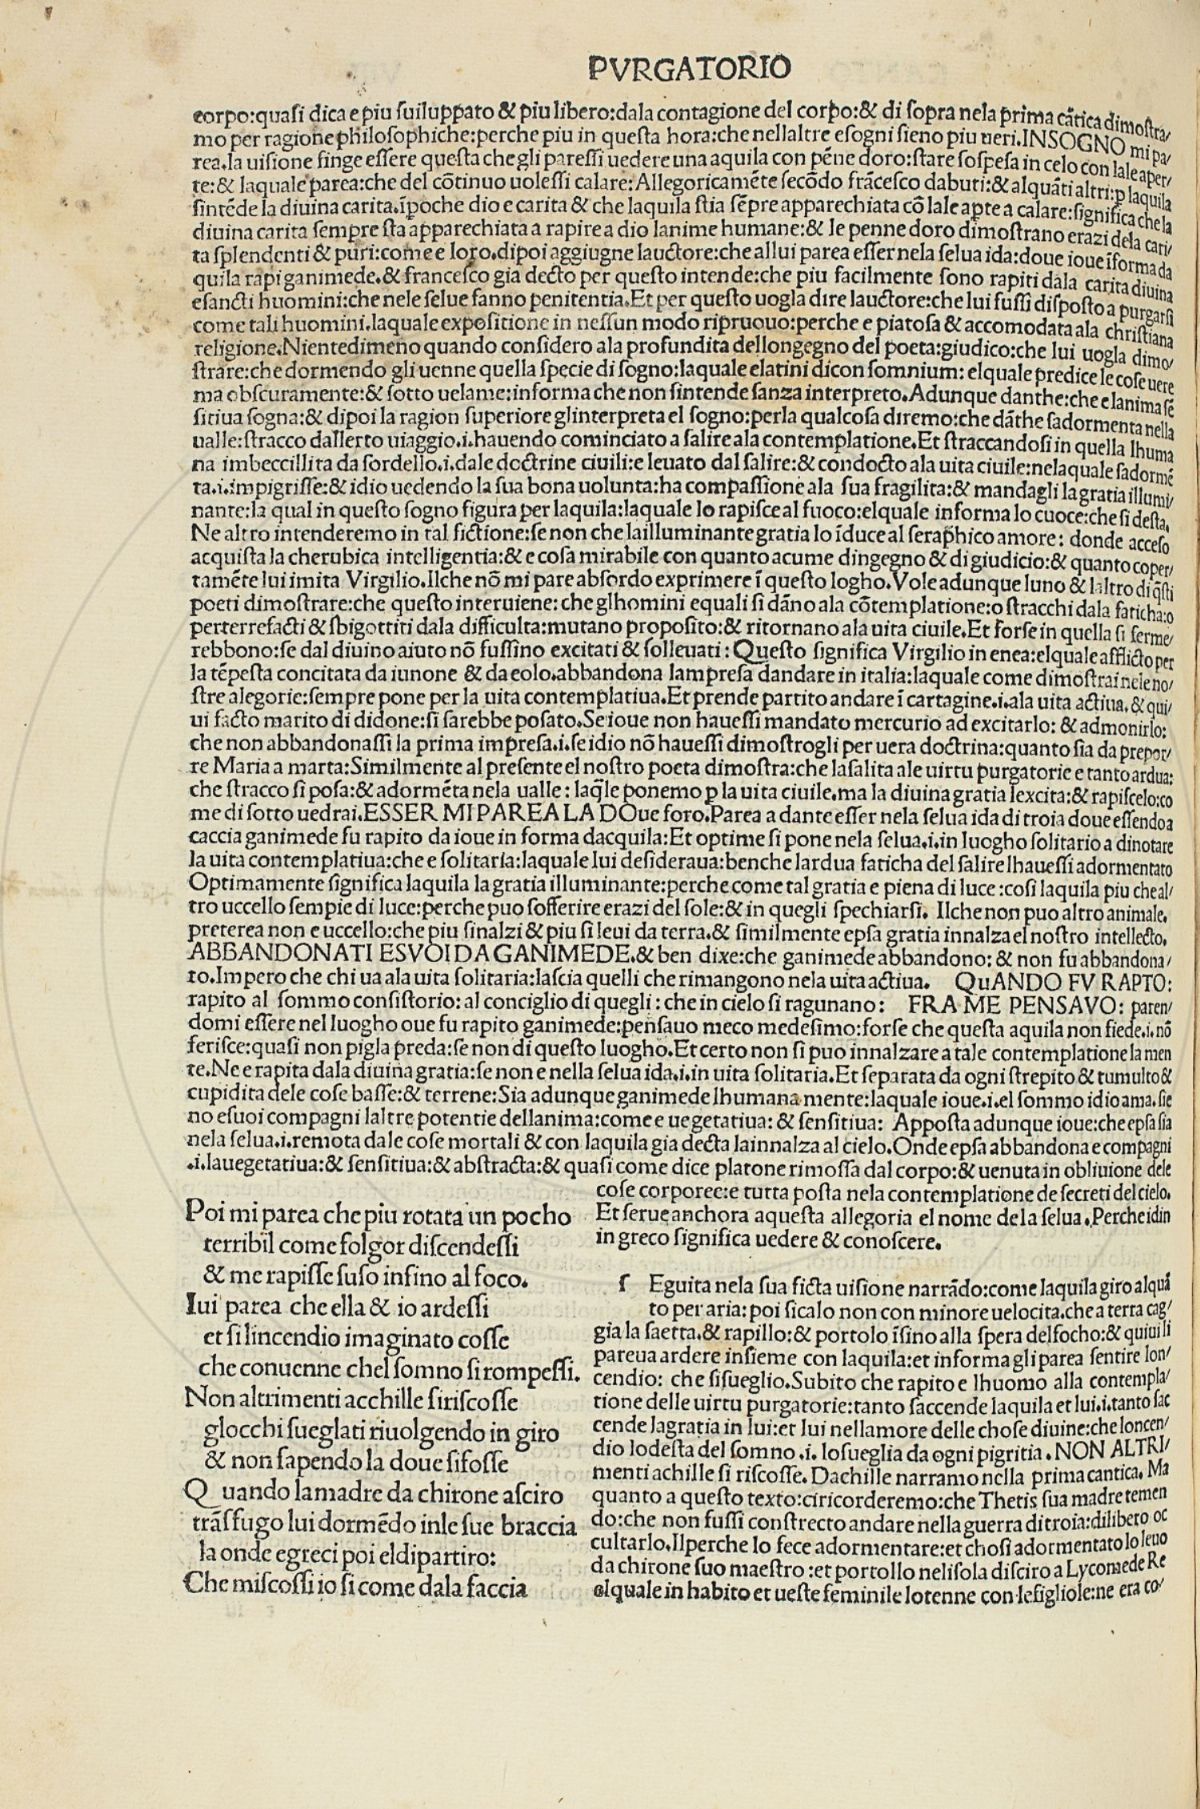 PVRGATORIO
corpo:quasi dica e piu suiluppato & piu libero:dala contagione del corpo:& di sopra nela prima cãtica dimostra/
mo per ragione philosophiche:perche piu in questa hora:che nellaltre e sogni sieno piu ueri.INSOGNO mi pa/
rea.la uisione finge essere questa che gli paressi uedere una aquila con pẽne doro:stare sospesa in celo con lale aper/
te:& laquale parea:che del cõtinuo uolessi calare:Allegoricamẽte secõdo frãcesco dabuti:& alquãti altri:p laquila
sintẽde la diuina carita.ĩpoche dio e carita & che laquila stia sẽpre apparechiata cõ lale apte a calare:significa che la
diuina carita sempre sta apparechiata a rapire a dio lanime humane:& le penne doro dimostrano e razi dela cari/
ta splendenti & puri:come e loro.dipoi aggiugne lauctore:che allui parea esser nela selua ida:doue ioue ĩforma da
quila rapi ganimede.& francesco gia decto per questo intende:che piu facilmente sono rapiti dala carita diuina
e sancti huomini:che nele selue fanno penitentia.Et per questo uogla dire lauctore:che lui fussi disposto a purgarsi
come tali huomini.laquale expositione in nessun modo ripruouo:perche e piatosa & accomodata ala christiana
religione.Nientedimeno quando considero ala profundita dellongegno del poeta:giudico:che lui uogla dimo/
strare:che dormendo gli uenne quella specie di sogno:laquale e latini dicon somnium: elquale predice le cose uere
ma obscuramente:& sotto uelame:informa che non sintende sanza interpreto.Adunque danthe:che e lanima sẽ
sitiua sogna:& dipoi la ragion superiore glinterpreta el sogno:perla qualcosa diremo:che dãthe sadormenta nella
ualle:stracco dallerto uiaggio.i.hauendo cominciato a salire ala contemplatione.Et straccandosi in quella lhuma
na imbeccillita da sordello.i.dale doctrine ciuili:e leuato dal salire:& condocto ala uita ciuile:nelaquale sadormẽ
ta.i.impigrisse:& idio uedendo la sua bona uolunta:ha compassione ala sua fragilita:& mandagli la gratia illumi/
nante:la qual in questo sogno figura per laquila:laquale lo rapisce al fuoco:elquale informa lo cuoce:che si desta.
Ne altro intenderemo in tal fictione:se non che la illuminante gratia lo ĩduce al seraphico amore: donde acceso
acquista la cherubica intelligentia:& e cosa mirabile con quanto acume dingegno & di giudicio:& quanto coper/
tamẽte lui imita Virgilio.Ilche nõ mi pare absordo exprimere ĩ questo logho.Vole adunque luno & laltro di q̃sti
poeti dimostrare:che questo interuiene: che glhomini equali si dãno ala cõtemplatione:o stracchi dala faticha:o
perterrefacti & sbigottiti dala difficulta:mutano proposito:& ritornano ala uita ciuile.Et forse in quella si ferme/
rebbono:se dal diuino aiuto nõ fussino excitati & solleuati:Questo significa Virgilio in enea:elquale afflicto per
la tẽpesta concitata da iunone & da eolo.abbandona lampresa dandare in italia:laquale come dimostrai nele no/
stre alegorie:sempre pone per la uita contemplatiua.Et prende partito andare ĩ cartagine.i.ala uita actiua.& qui/
ui facto marito di didone:si sarebbe posato.Se ioue non hauessi mandato mercurio ad excitarlo: & admonirlo:
che non abbandonassi la prima impresa.i.se idio nõ hauessi dimostrogli per uera doctrina:quanto sia da prepor/
re Maria a marta:Similmente al presente el nostro poeta dimostra:che la salita ale uirtu purgatorie e tanto ardua:
che stracco si posa:& adormẽta nela ualle: laq̃le ponemo p la uita ciuile.ma la diuina gratia lexcita:& rapiscelo:co
me di sotto uedrai.ESSER MI PAREA LA DOue foro.Parea a dante esser nela selua ida di troia doue essendo a
caccia ganimede fu rapito da ioue in forma dacquila:Et optime si pone nela selua.i.in luogho solitario a dinotare
la uita contemplatiua:che e solitaria:laquale lui desideraua:benche lardua faticha del salire lhauessi adormentato
Optimamente significa laquila la gratia illuminante:perche come tal gratia e piena di luce:cosi laquila piu che al/
tro uccello sempie di luce:perche puo sofferire e razi del sole:& in quegli spechiarsi. Ilche non puo altro animale.
preterea non e uccello:che piu sinalzi & piu si leui da terra.& similmente epsa gratia innalza el nostro intellecto.
ABBANDONATI E SVOI DA GANIMEDE.& ben dixe:che ganimede abbandono: & non fu abbandona/
to.Impero che chi ua ala uita solitaria:lascia quelli che rimangono nela uita actiua. QuANDO FV RAPTO:
rapito al sommo consistorio: al conciglio di quegli: che in cielo si ragunano: FRA ME PENSAVO: paren/
domi essere nel luogho oue fu rapito ganimede:pensauo meco medesimo:forse che questa aquila non fiede.i.nõ
ferisce:quasi non pigla preda:se non di questo luogho.Et certo non si puo innalzare a tale contemplatione la men
te.Ne e rapita dala diuina gratia:se non e nella selua ida.i.in uita solitaria.Et separata da ogni strepito & tumulto &
cupidita dele cose basse:& terrene:Sia adunque ganimede lhumana mente:laquale ioue.i.el sommo idio ama.sie
no e suoi compagni laltre potentie dellanima:come e uegetatiua: & sensitiua: Apposta adunque ioue:che epsa sia
nela selua.i.remota dale cose mortali & con laquila gia decta la innalza al cielo.Onde epsa abbandona e compagni
.i.la uegetatiua:& sensitiua:& abstracta:& quasi come dice platone rimossa dal corpo:& uenuta in obliuione dele
cose corporee:e tutta posta nela contemplatione de secreti del cielo.
Et serue anchora a questa allegoria el nome dela selua.Perche idin
in greco significa uedere & conoscere.
Poi mi parea che piu rotata un pocho
terribil come folgor discendessi
& me rapisse suso infino al foco.
Iui parea che ella & io ardessi
et si lincendio imaginato cosse
che conuenne chel somno si rompessi.
Non altrimenti acchille si riscosse
glocchi sueglati riuolgendo in giro
& non sapendo la doue si fosse
Quando la madre da chirone a sciro
trãsfugo lui dormẽdo in le sue braccia
la onde e greci poi el dipartiro:
Che mi scossi io si come dala faccia
f Eguita nela sua ficta uisione narrãdo:come laquila giro alquã
to per aria: poi si calo non con minore uelocita.che a terra cag/
gia la saetta.& rapillo:& portolo ĩsino alla spera del focho:& quiui li
pareua ardere insieme con laquila:et informa gli parea sentire lon/
cendio: che si sueglio.Subito che rapito e lhuomo alla contempla/
tione delle uirtu purgatorie:tanto saccende laquila et lui.i.tanto sac
cende la gratia in lui:et lui nellamore delle chose diuine:che loncen/
dio lo desta del somno .i. lo sueglia da ogni pigritia.NON ALTRI/
menti achille si riscosse. Dachille narramo nella prima cantica. Ma
quanto a questo texto:ci ricorderemo:che Thetis sua madre temen
do:che non fussi constrecto andare nella guerra di troia:dilibero oc
cultarlo.Ilperche lo fece adormentare:et chosi adormentato lo leuo
da chirone suo maestro:et portollo nelisola di sciro a Lycomede Re
elquale in habito et ueste feminile lo tenne con le figliole:ne era co/